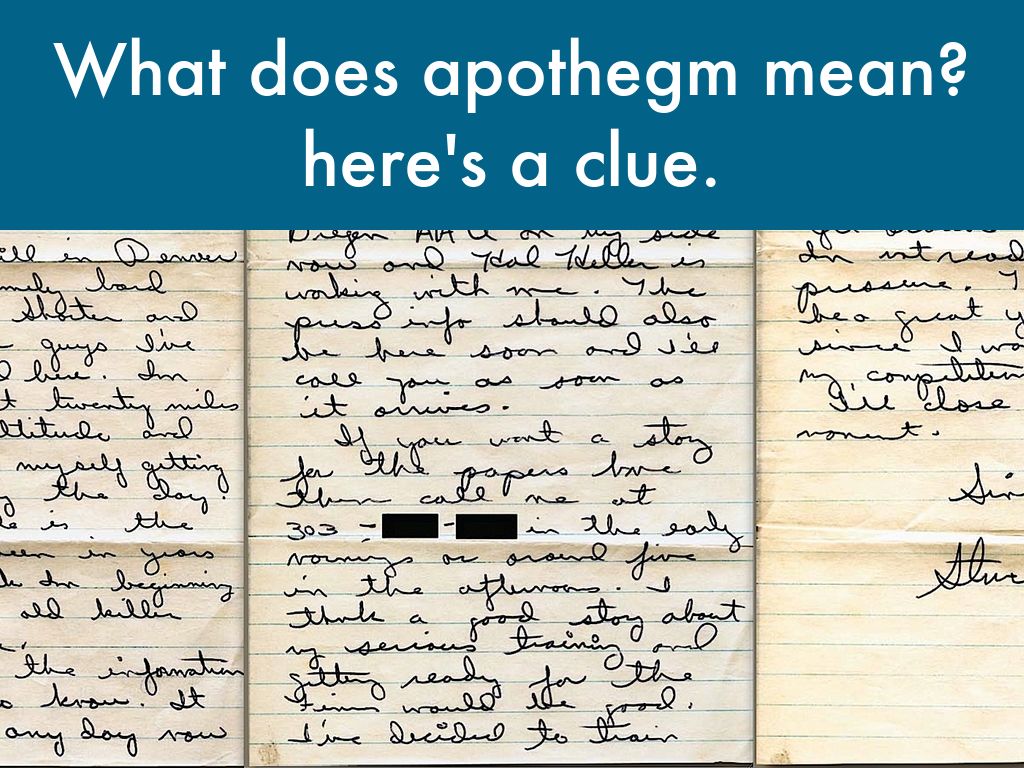 What does apothegm mean?
here's a clue.
ill in Denver
hard
shorter and
guys I've
here. Im
t twenty miles
ltitude and
myself getting
the day.
is the
een in years
Im beginning
old killer
the information
o know. It
any day now
Diego AAU on my side
now and Hal Heller is
working with me. The
press info should also
be here soon and I'll
call you as soon as
it arrives.
If you want a story
for the papers have
them call me at
303 - - in the early
mornings or around five
in the afternoons. I
think a good story about
my serious training and
getting ready for the
would be good.
I've decided to train
Im not read
pressure. T
be a great y
since I wo
my competition
I'll close
moment.
Sin